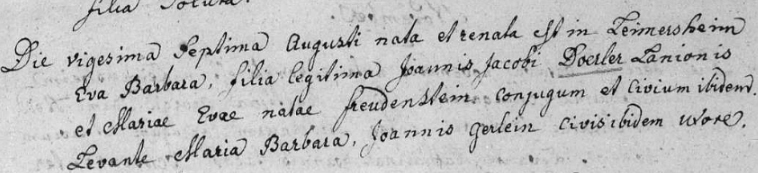 filia Soluta.
Die vigesima Septima Augusti nata et renata est in Leimersheim
Eva Barbara, filia legitima Joannis Jacobi Doerler Lanionis
et Mariae Evae natae freudenstein conjugum et Civium ibidem.
Levante Maria Barbara, Joannis Gerlein Civis ibidem uxore.